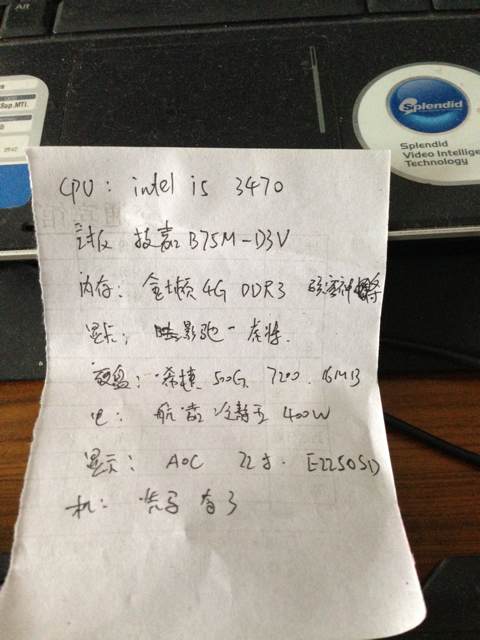 Sup.MTI.
Splendid
Splendid
Video Intellige
Technology
CPU: intel i5 3470
主板 技嘉B75M-D3V
内存: 金士顿 4G DDR3 骇客神条
显卡: 影驰 虎将
硬盘: 希捷 500G. 7200. 16MB
电: 航嘉 冷静王 400W
显示: AOC 22寸. E2250SD
机: